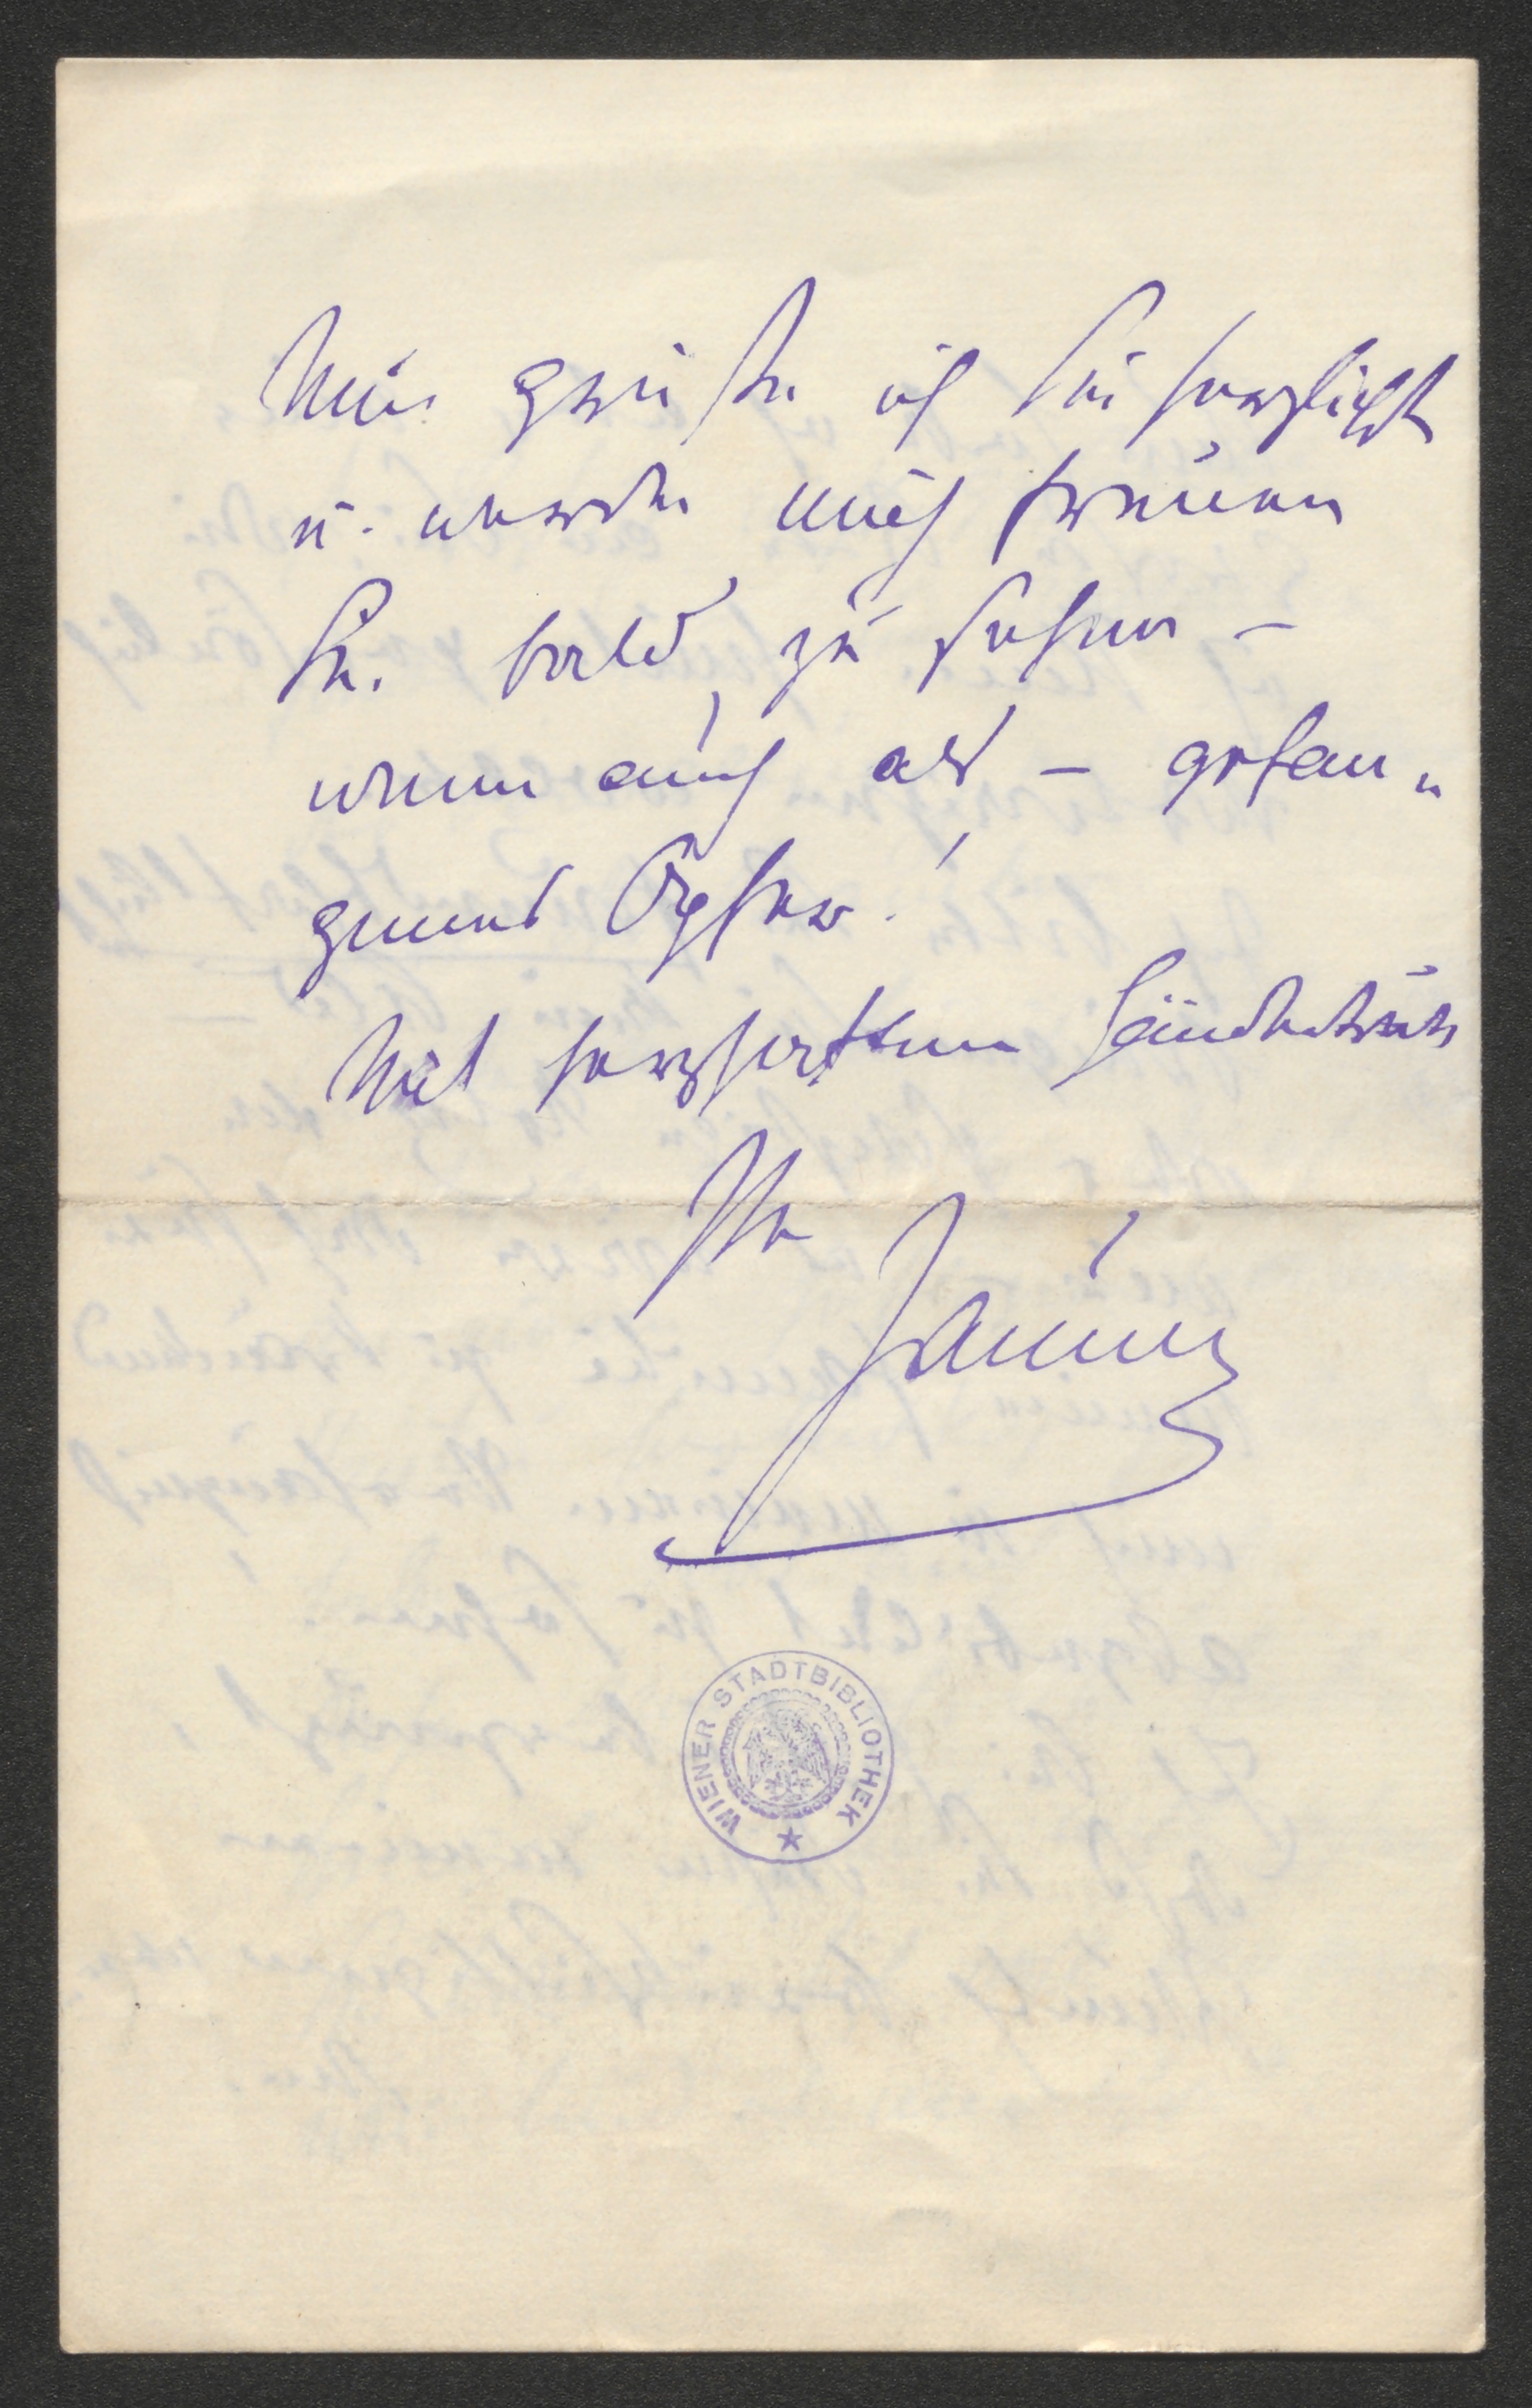 Nun grüße ich Sie herzlichst
u. werde mich freuen
Sie bald zu sehen –
wenn auch als – gefan„
genes Opfer!
Mit herzhaftem Händedruck
Ihr
WIENER STADTBIBLIOTHEK